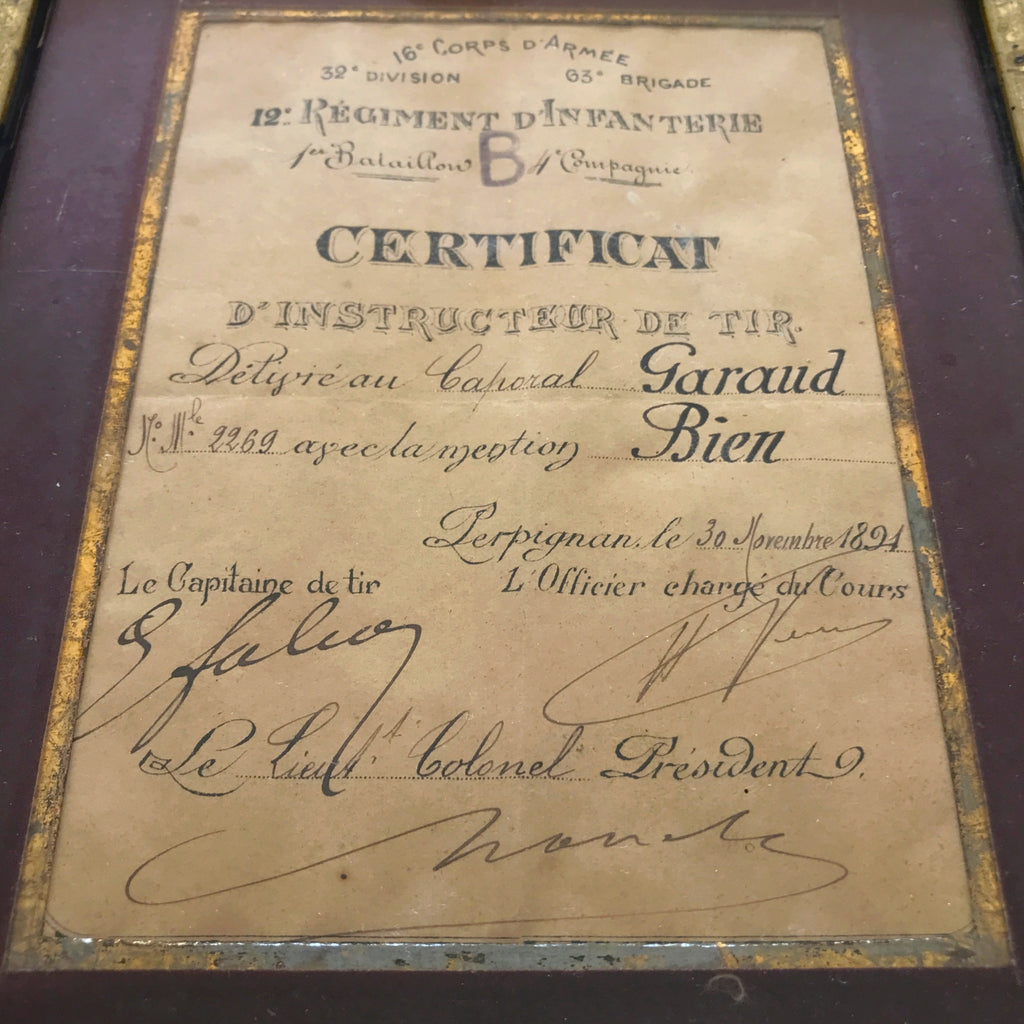 16e CORPS D'ARMÉE
32e DIVISION 63e BRIGADE
12e RÉGIMENT D'INFANTERIE
1er Bataillon B 4e Compagnie
CERTIFICAT
D'INSTRUCTEUR DE TIR.
Délivré au Caporal Garaud
No. Mle 2269 avec la mention Bien
Perpignan, le 30 Novembre 1891
Le Capitaine de tir L'Officier chargé du Cours
Le Lieutt Colonel Président